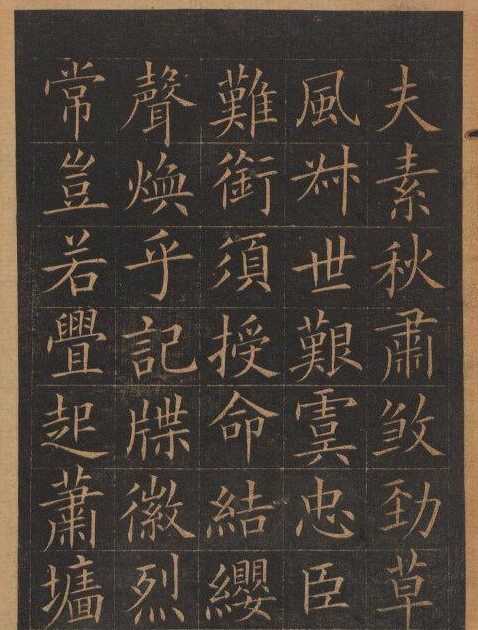 夫素秋肅煞勁草
風叔世艱虞忠臣
難銜須授命結纓
聲煥乎記牒徽烈
常豈若舋起蕭墻